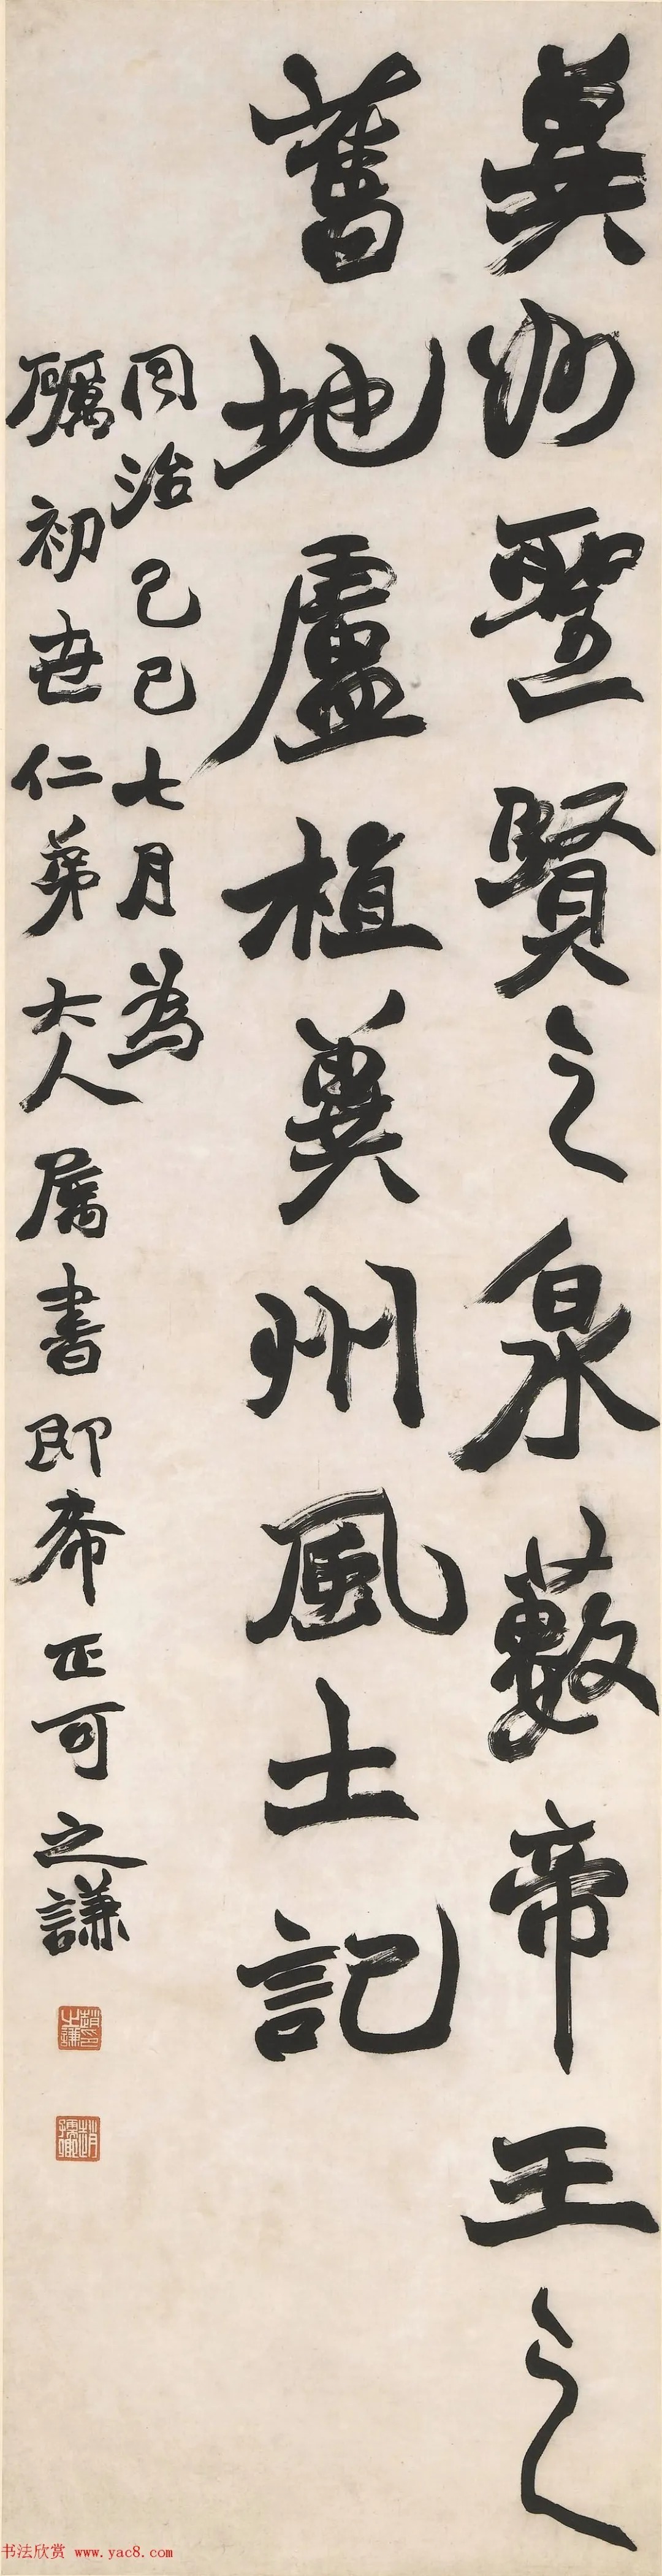 冀州聖賢之泉藪帝王之
舊地盧植冀州風土記
同治己巳七月為
礪初世仁弟大人屬書即希正可之謙
趙之謙印
趙撝叔
书法欣赏 www.yac8.com